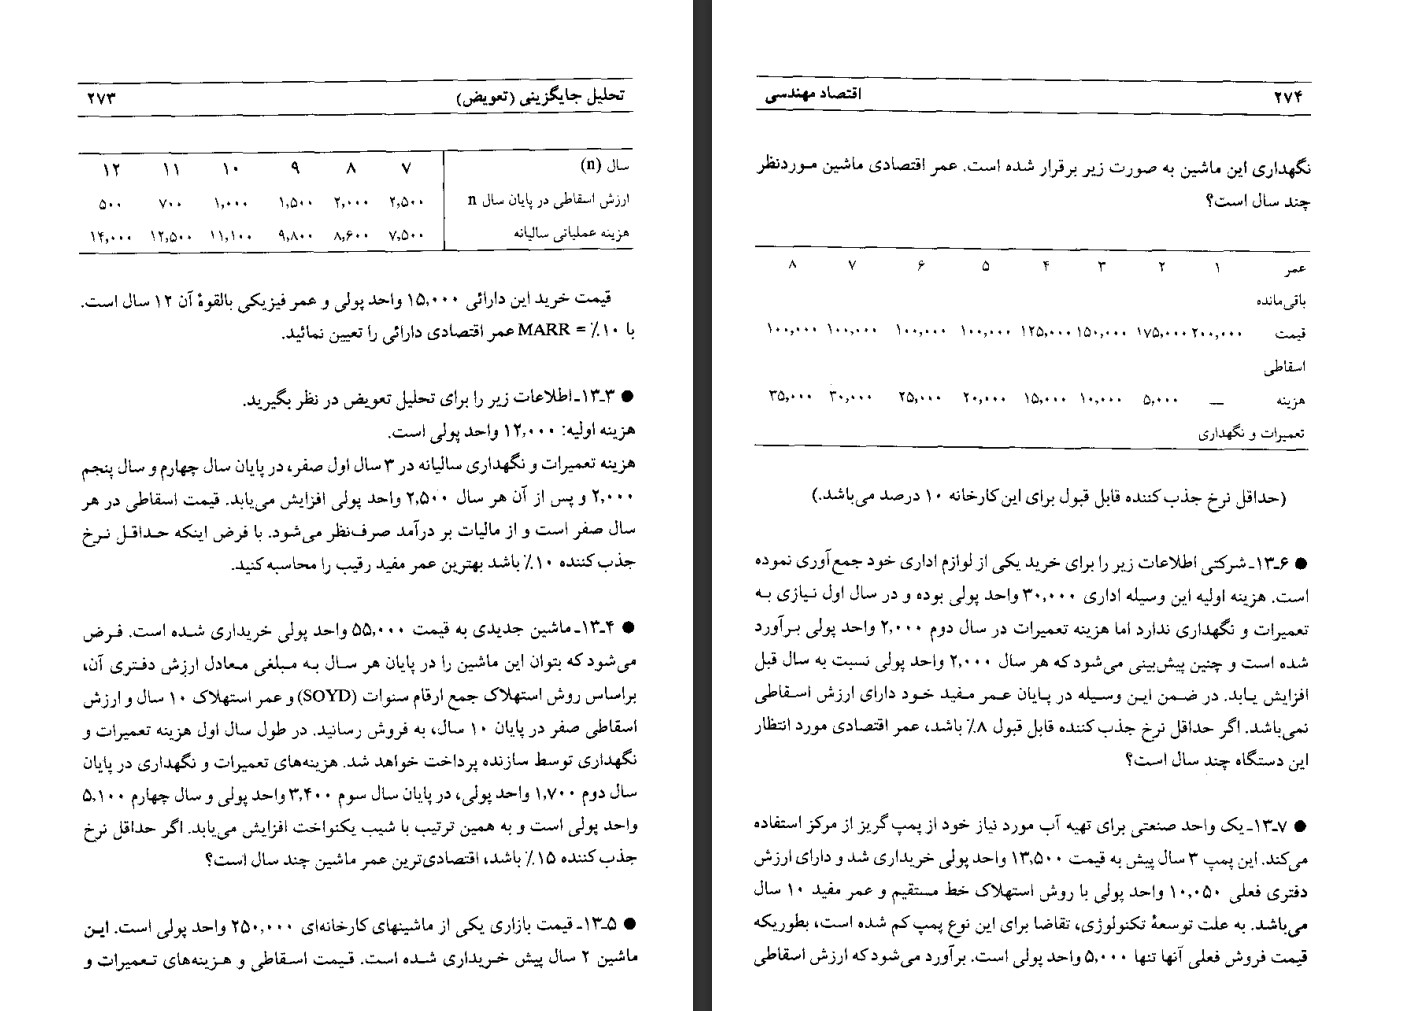 تحلیل جایگزینی (تعویض) ۲۷۳
سال (n) ۷ ۸ ۹ ۱۰ ۱۱ ۱۲
ارزش اسقاطی در پایان سال n ۲,۵۰۰ ۲,۰۰۰ ۱,۵۰۰ ۱,۰۰۰ ۷۰۰ ۵۰۰
هزینه عملیاتی سالیانه ۷,۵۰۰ ۸,۶۰۰ ۹,۸۰۰ ۱۱,۱۰۰ ۱۲,۵۰۰ ۱۴,۰۰۰
قیمت خرید این دارائی ۱۵,۰۰۰ واحد پولی و عمر فیزیکی بالقوهٔ آن ۱۲ سال است.
با ۱۰٪ = MARR عمر اقتصادی دارائی را تعیین نمائید.
● ۱۳ـ۳ـ اطلاعات زیر را برای تحلیل تعویض در نظر بگیرید.
هزینه اولیه: ۱۲,۰۰۰ واحد پولی است.
هزینه تعمیرات و نگهداری سالیانه در ۳ سال اول صفر، در پایان سال چهارم و سال پنجم
۲,۰۰۰ و پس از آن هر سال ۲,۵۰۰ واحد پولی افزایش می‌یابد. قیمت اسقاطی در هر
سال صفر است و از مالیات بر درآمد صرف‌نظر می‌شود. با فرض اینکه حداقل نرخ
جذب‌کننده ۱۰٪ باشد بهترین عمر مفید رقیب را محاسبه کنید.
● ۱۳ـ۴ـ ماشین جدیدی به قیمت ۵۵,۰۰۰ واحد پولی خریداری شده است. فرض
می‌شود که بتوان این ماشین را در پایان هر سال به مبلغی معادل ارزش دفتری آن،
براساس روش استهلاک جمع ارقام سنوات (SOYD) و عمر استهلاک ۱۰ سال و ارزش
اسقاطی صفر در پایان ۱۰ سال، به فروش رسانید. در طول سال اول هزینه تعمیرات و
نگهداری توسط سازنده پرداخت خواهد شد. هزینه‌های تعمیرات و نگهداری در پایان
سال دوم ۱,۷۰۰ واحد پولی، در پایان سال سوم ۳,۴۰۰ واحد پولی و سال چهارم ۵,۱۰۰
واحد پولی است و به همین ترتیب با شیب یکنواخت افزایش می‌یابد. اگر حداقل نرخ
جذب‌کننده ۱۵٪ باشد، اقتصادی‌ترین عمر ماشین چند سال است؟
● ۱۳ـ۵ـ قیمت بازاری یکی از ماشینهای کارخانه‌ای ۲۵۰,۰۰۰ واحد پولی است. این
ماشین ۲ سال پیش خریداری شده است. قیمت اسقاطی و هزینه‌های تعمیرات و
۲۷۴ اقتصاد مهندسی
نگهداری این ماشین به صورت زیر برقرار شده است. عمر اقتصادی ماشین موردنظر
چند سال است؟
عمر ۱ ۲ ۳ ۴ ۵ ۶ ۷ ۸
باقی‌مانده
قیمت ۲۰۰,۰۰۰ ۱۷۵,۰۰۰ ۱۵۰,۰۰۰ ۱۲۵,۰۰۰ ۱۰۰,۰۰۰ ۱۰۰,۰۰۰ ۱۰۰,۰۰۰ ۱۰۰,۰۰۰
اسقاطی
هزینه — ۵,۰۰۰ ۱۰,۰۰۰ ۱۵,۰۰۰ ۲۰,۰۰۰ ۲۵,۰۰۰ ۳۰,۰۰۰ ۳۵,۰۰۰
تعمیرات و نگهداری
(حداقل نرخ جذب‌کننده قابل قبول برای این کارخانه ۱۰ درصد می‌باشد.)
● ۱۳ـ۶ـ شرکتی اطلاعات زیر را برای خرید یکی از لوازم اداری خود جمع‌آوری نموده
است. هزینه اولیه این وسیله اداری ۳۰,۰۰۰ واحد پولی بوده و در سال اول نیازی به
تعمیرات و نگهداری ندارد اما هزینه تعمیرات در سال دوم ۲,۰۰۰ واحد پولی برآورد
شده است و چنین پیش‌بینی می‌شود که هر سال ۲,۰۰۰ واحد پولی نسبت به سال قبل
افزایش یابد. در ضمن این وسیله در پایان عمر مفید خود دارای ارزش اسقاطی
نمی‌باشد. اگر حداقل نرخ جذب‌کننده قابل قبول ۸٪ باشد، عمر اقتصادی مورد انتظار
این دستگاه چند سال است؟
● ۱۳ـ۷ـ یک واحد صنعتی برای تهیه آب مورد نیاز خود از پمپ گریز از مرکز استفاده
می‌کند. این پمپ ۳ سال پیش به قیمت ۱۳,۵۰۰ واحد پولی خریداری شد و دارای ارزش
دفتری فعلی ۱۰,۰۵۰ واحد پولی با روش استهلاک خط مستقیم و عمر مفید ۱۰ سال
می‌باشد. به علت توسعهٔ تکنولوژی، تقاضا برای این نوع پمپ کم شده است، بطوریکه
قیمت فروش فعلی آنها تنها ۵,۰۰۰ واحد پولی است. برآورد می‌شود که ارزش اسقاطی